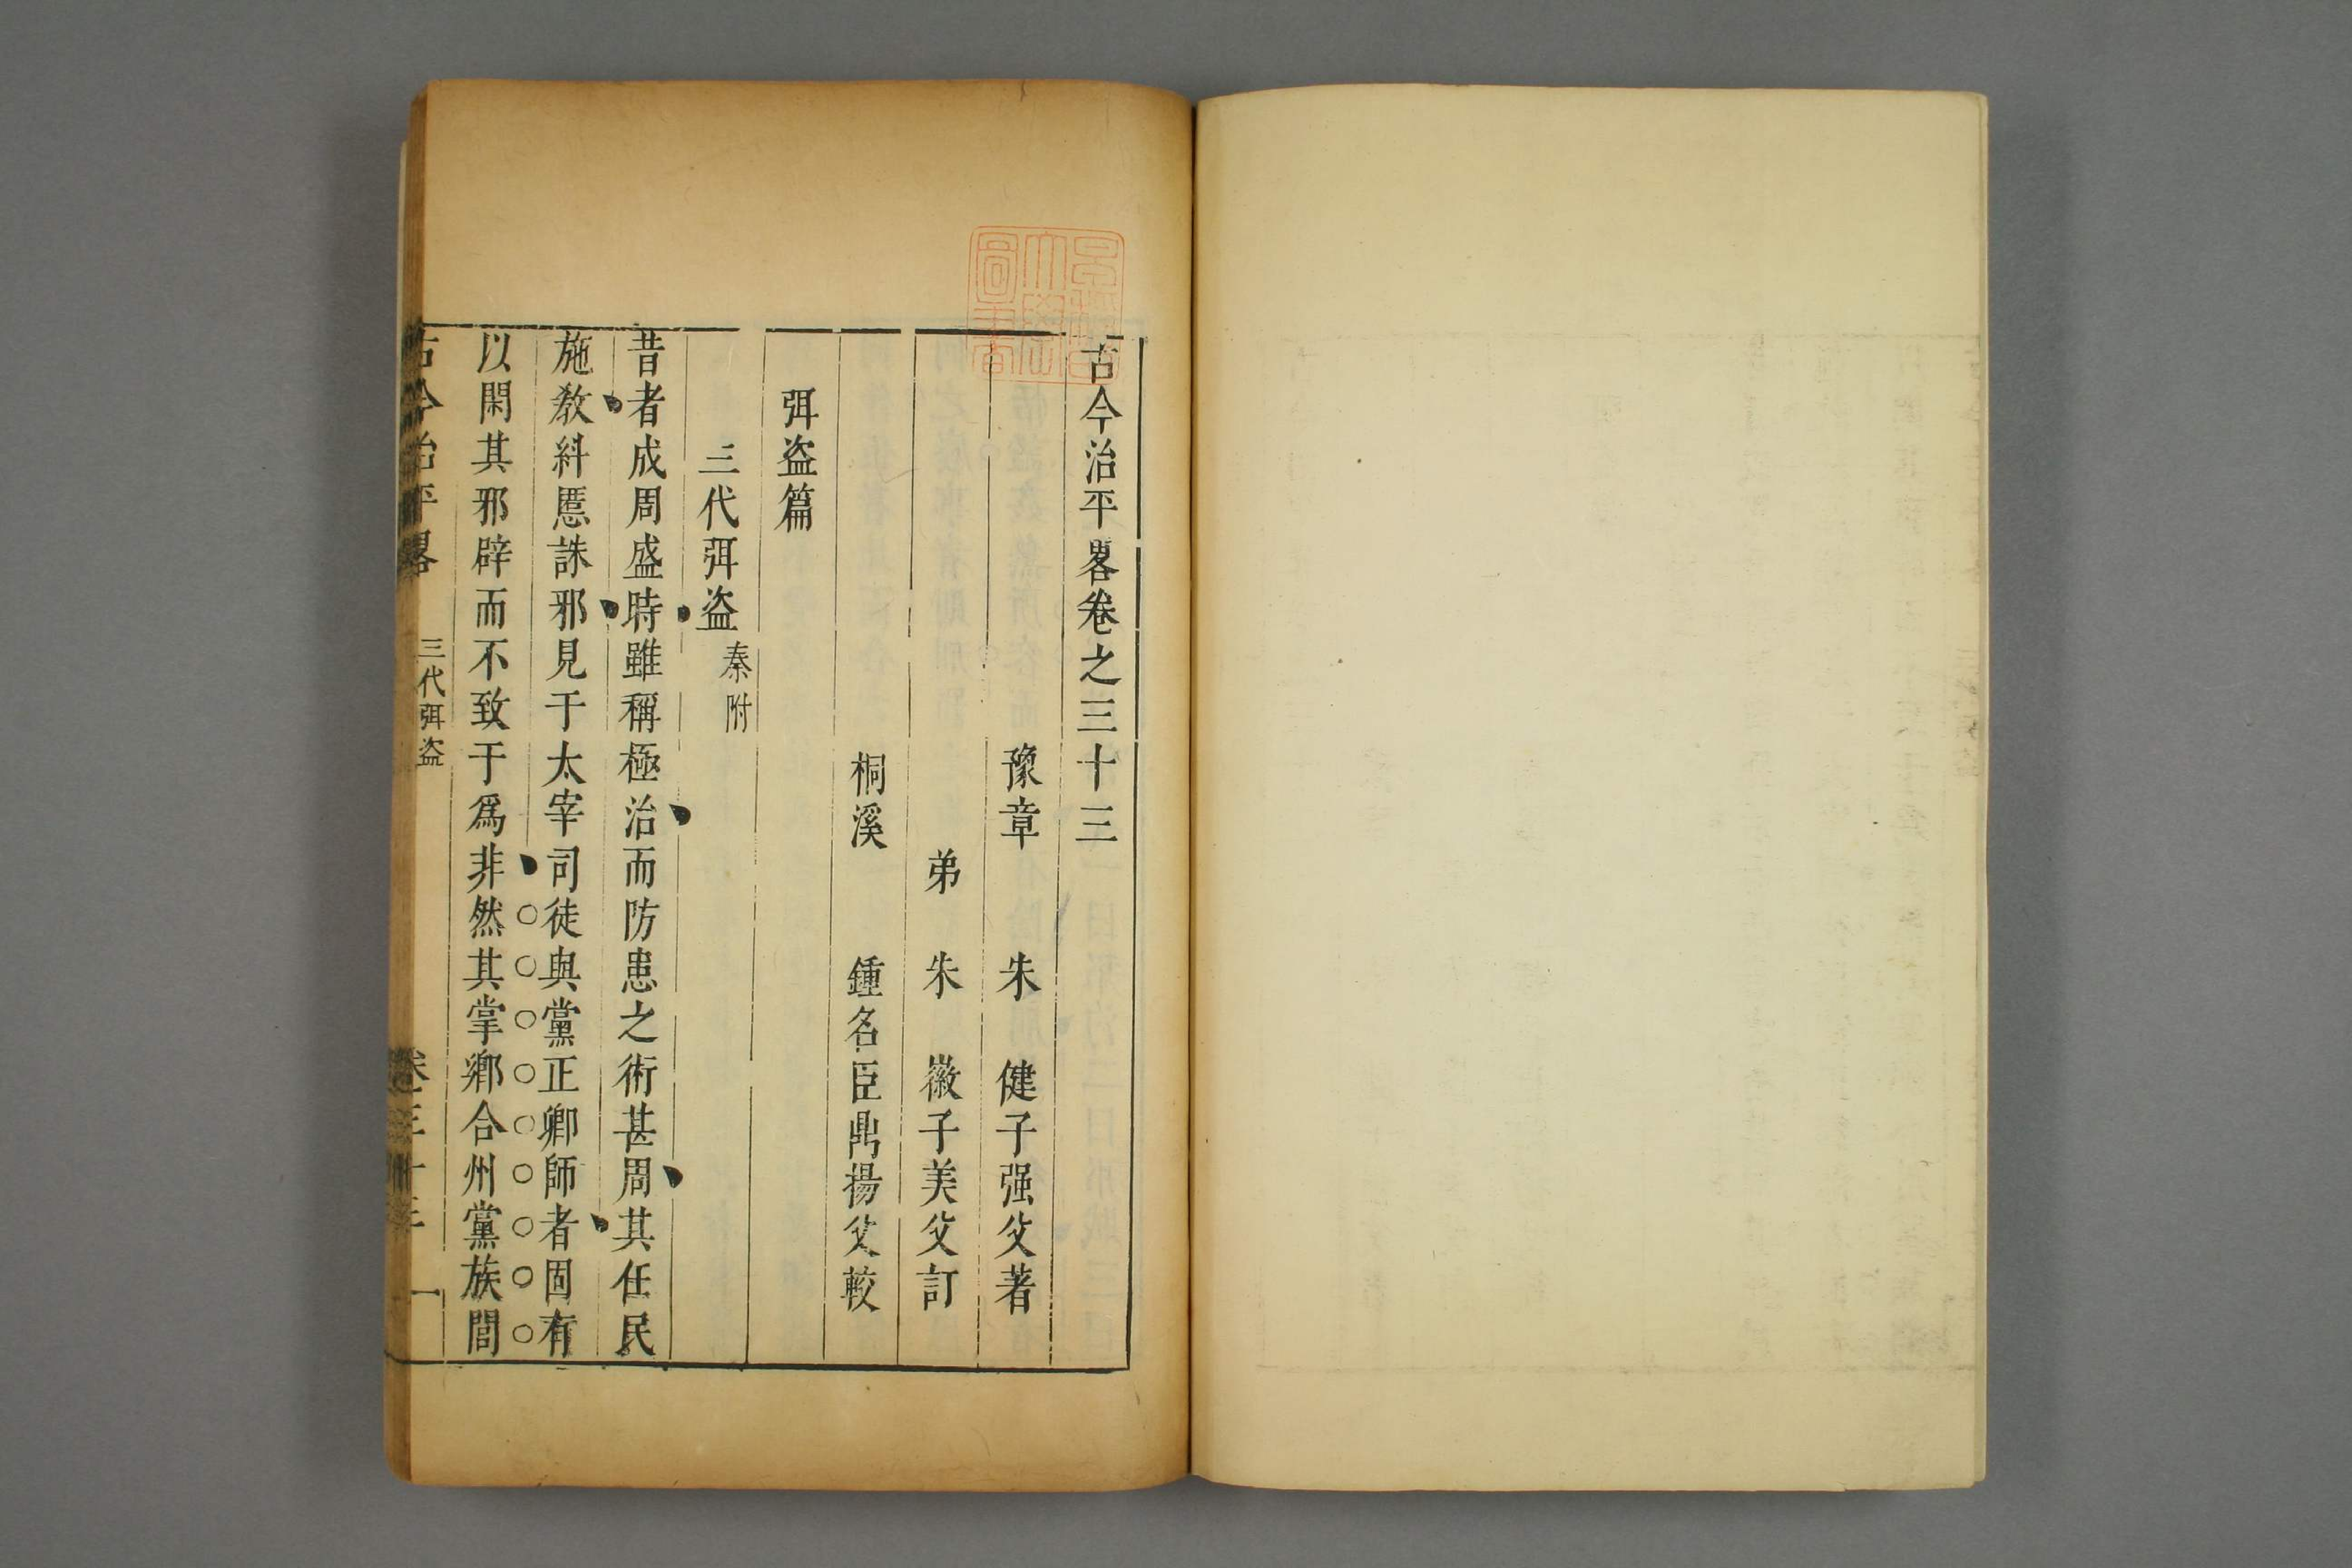 古今治平畧卷之三十三
豫章　朱　健子强父著
弟　朱　徽子美父訂
桐溪　鍾名臣鼎揚父較
弭盗篇
三代弭盗 秦附
昔者成周盛時雖稱極治而防患之術甚周其任民
施教糾慝誅邪見于太宰司徒與黨正鄉師者固有
以閑其邪辟而不致于爲非然其掌鄉合州黨族閭
古今治平畧　三代弭盗　卷之三十三　一